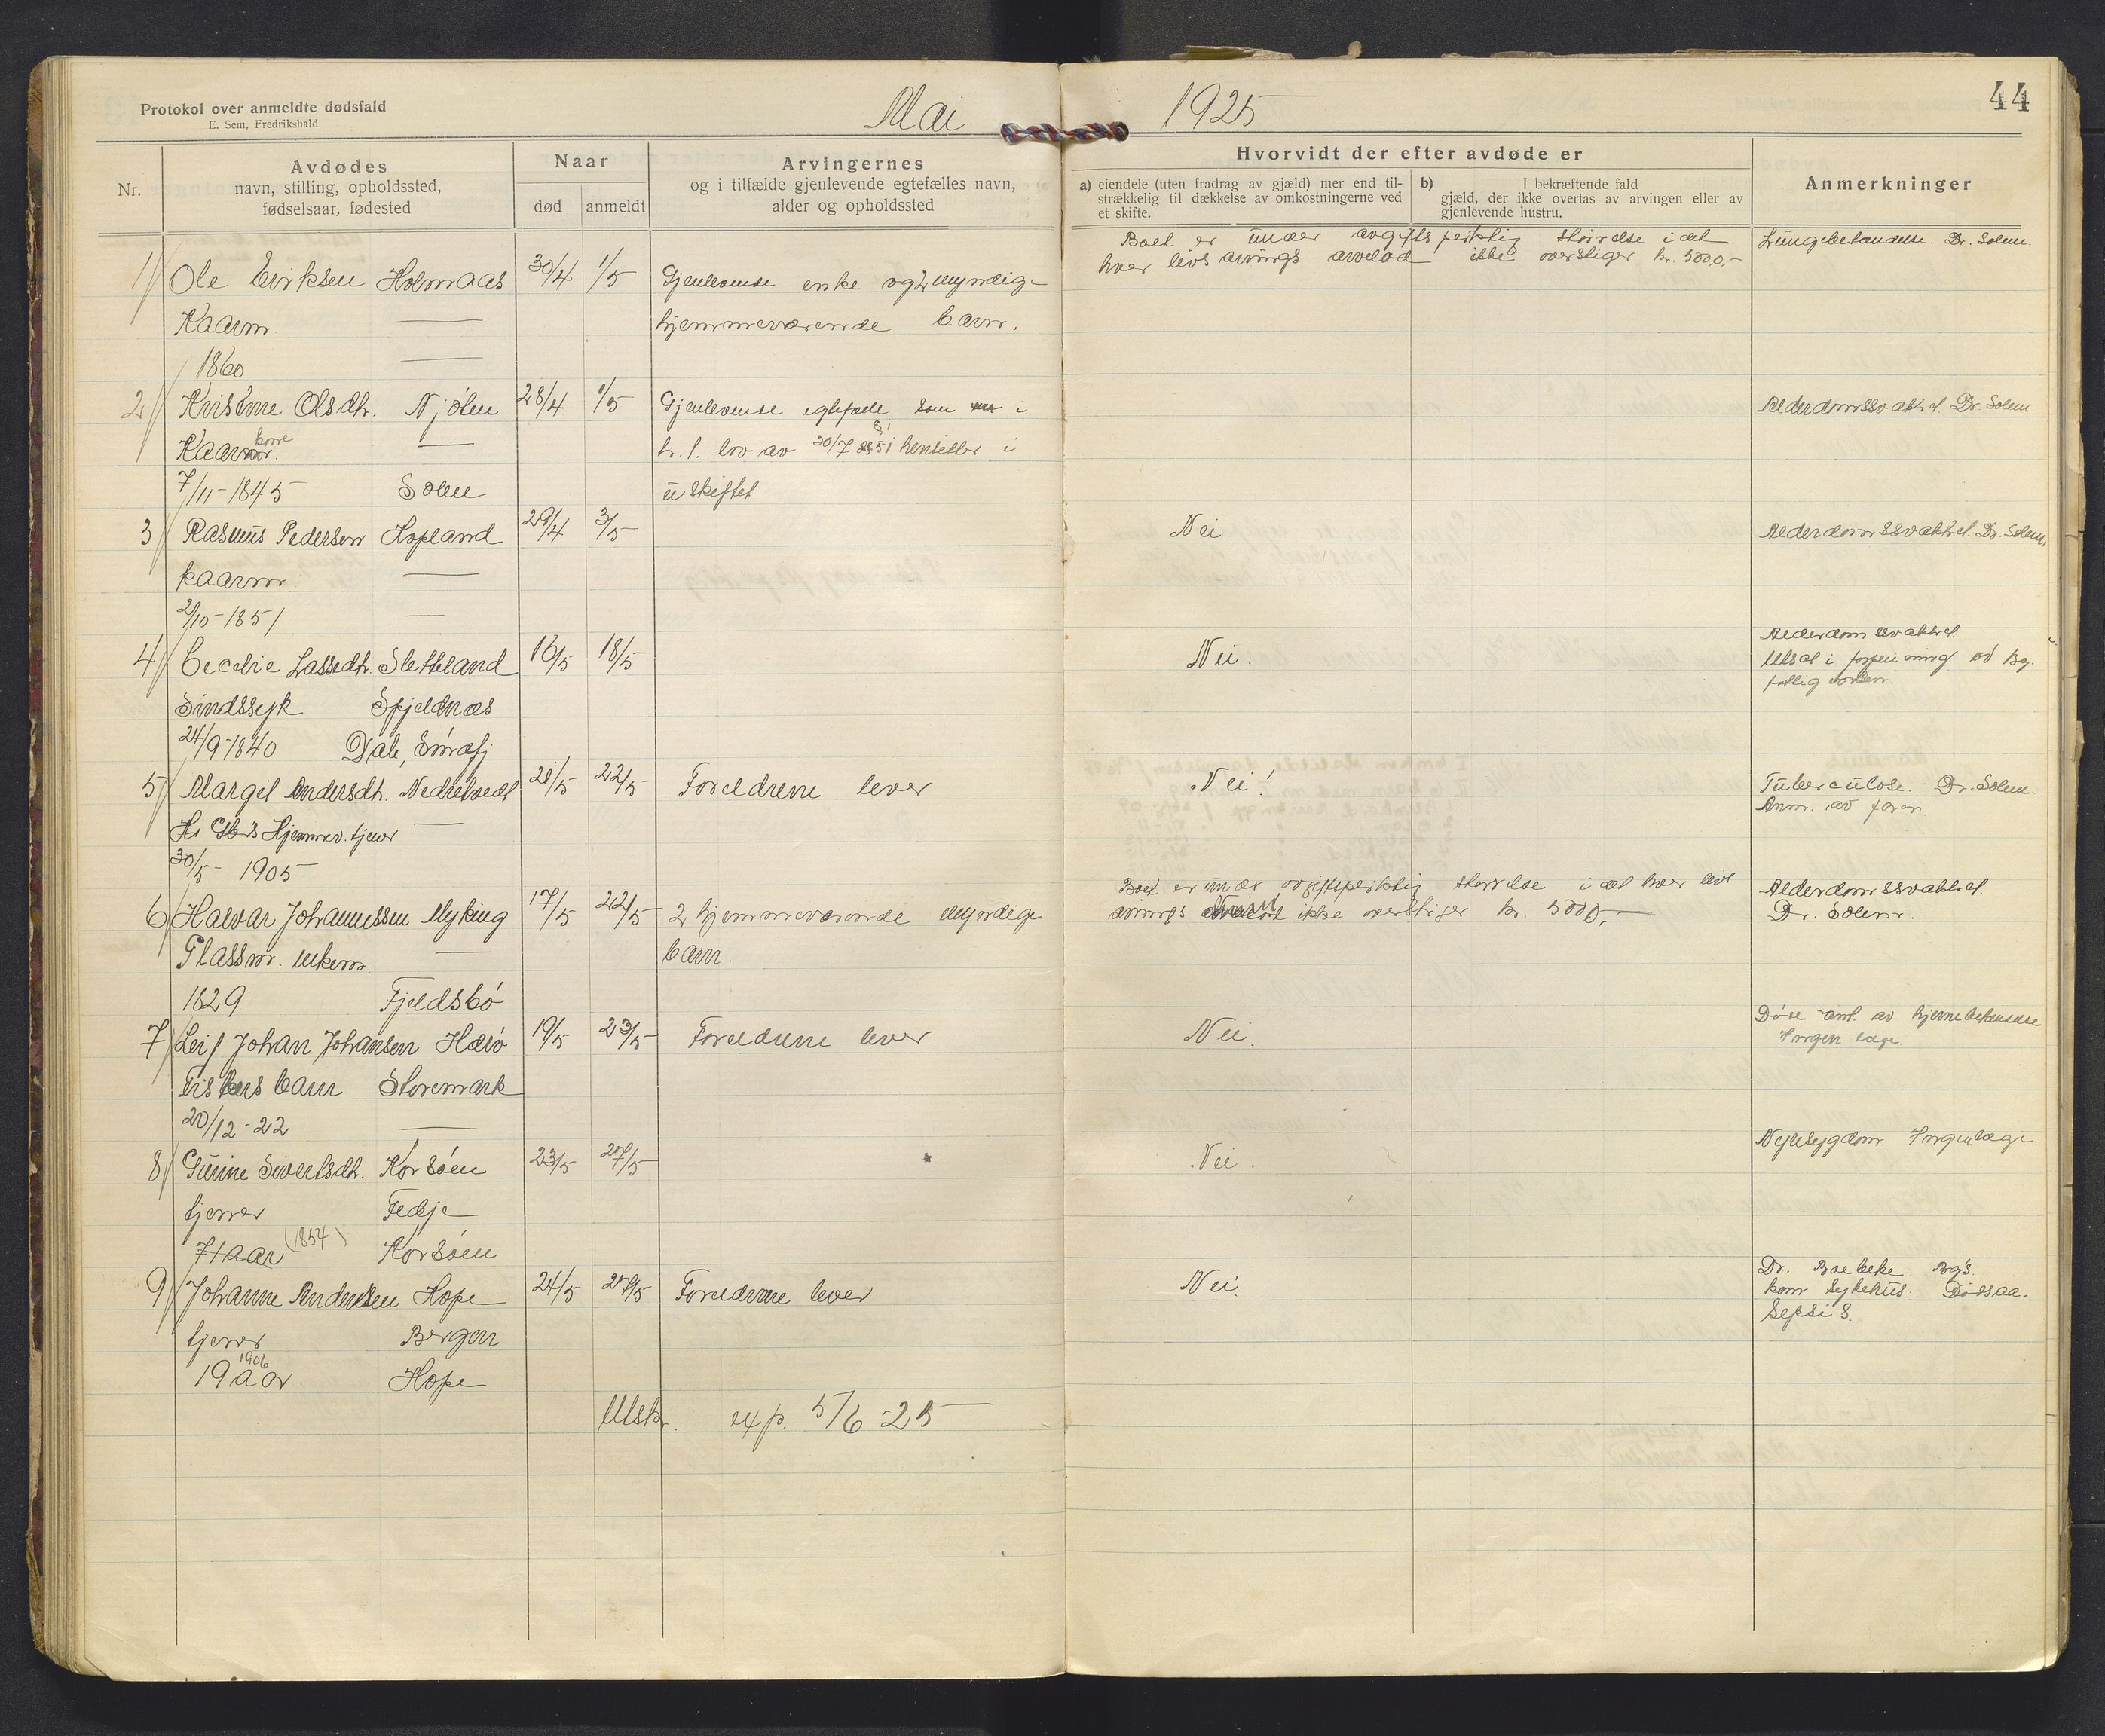 Protokol over anmeldte dødsfald
E. Sem, Fredrikshald
Mai 1925
44
Nr.
Avdødes
navn, stilling, opholdssted,
fødselsaar, fødested
Naar
død
anmeldt
Arvingernes
og i tilfælde gjenlevende egtefælles navn,
alder og opholdssted
Hvorvidt der efter avdøde er
a) eiendele (uten fradrag av gjæld) mer end til-
strækkelig til dækkelse av omkostningerne ved
et skifte.
b) I bekræftende fald
gjæld, der ikke overtas av arvingen eller av
gjenlevende hustru.
Anmerkninger
1 Ole Eriksen Holmaas 30/4 1/5 Gjenlevende enke og 2 myndige
Boet er under avgiftspliktig størrelse i det
hver livsarvings arvelod ikke overstiger kr. 5000,-
Lungebetændelse. Dr. Solem.
Kaarm. — hjemmeværende barn.
1860 —
2 Kristine Olsdtr. Njølen 28/4 1/5 Gjenlevende egtefælle som i
Alderdomssvakhet. Dr. Solem
Kaarkone — h. t. lov av 30/7 851 hensitter i
7/11-1845 Solem uskiftet
3 Rasmus Pedersen Hopland 29/4 3/5 Nei Alderdomssvakhet. Dr. Solem
kaarm. —
2/10-1851 —
4 Cecelie Lassedtr. Sletteland 16/5 18/5 Nei.
Alderdomssvakhet.
Utsat i forpleining av Bg.
fattigvæsen
Sindssyk Spjeldnæs
24/9-1840 Dale, Søndfj
5 Margit Andersdtr. Nedretvedt 21/5 22/5 Foreldrene lever Nei! Tuberculose. Dr. Solem.
Anm. av faren
Hjemmev. tjener —
30/5-1905
6 Halvar Johannessen Myking 17/5 22/5 2 hjemmeværende myndige
Boet er under avgiftspliktig størrelse i det hver livs
arvings ikke overstiger kr. 5000,—
Alderdomssvakhet.
Dr. Solem.
Plassm. enkem. — barn.
1829 Fjeldsbø
7 Leif Johan Johansen Hælvø 19/5 23/5 Foreldrene lever Nei.
Døde ant. av hjernebetændelse
Ingen læge.
Fiskers barn Storemark
20/12-22 —
8 Gurine Sivertsdtr. Korsøen 23/5 27/5 Nei. Nyresygdom Ingen læge
tjener Fedje
71 aar (1854) Korsøen
9 Johanne Andersen Hope 24/5 27/5 Foreldrene lever Nei.
Dr. Boebeke Bg's
kom Sykehus. Dødsaa.
Sepsis.
tjener Bergen
1906
19 aar Hope
Utskr. exp. 5/6-25